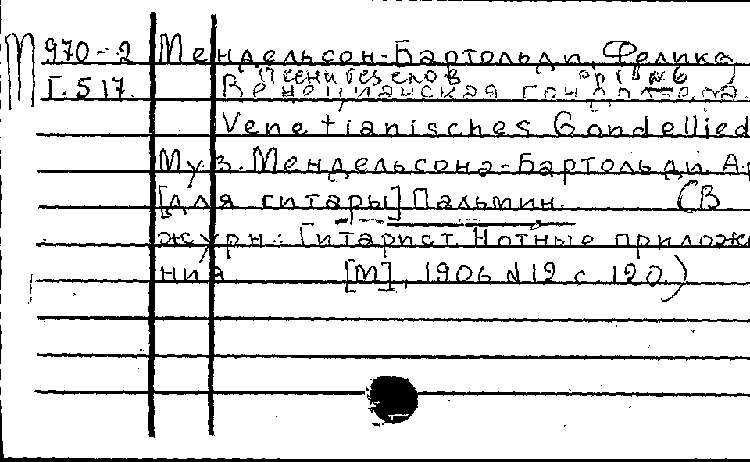 М 970-2 Мендельсон-Бартольди, Феликс
Песни без слов ор 19 №6
Г.517. Венецианская гондольера.
Venetianisches Gondellied
Муз. Мендельсона-Бартольди. Ар
[для гитары] Пальмин. (В
журн: Гитарист. Нотные прилож
ния [М], 1906 №12 с 120.)